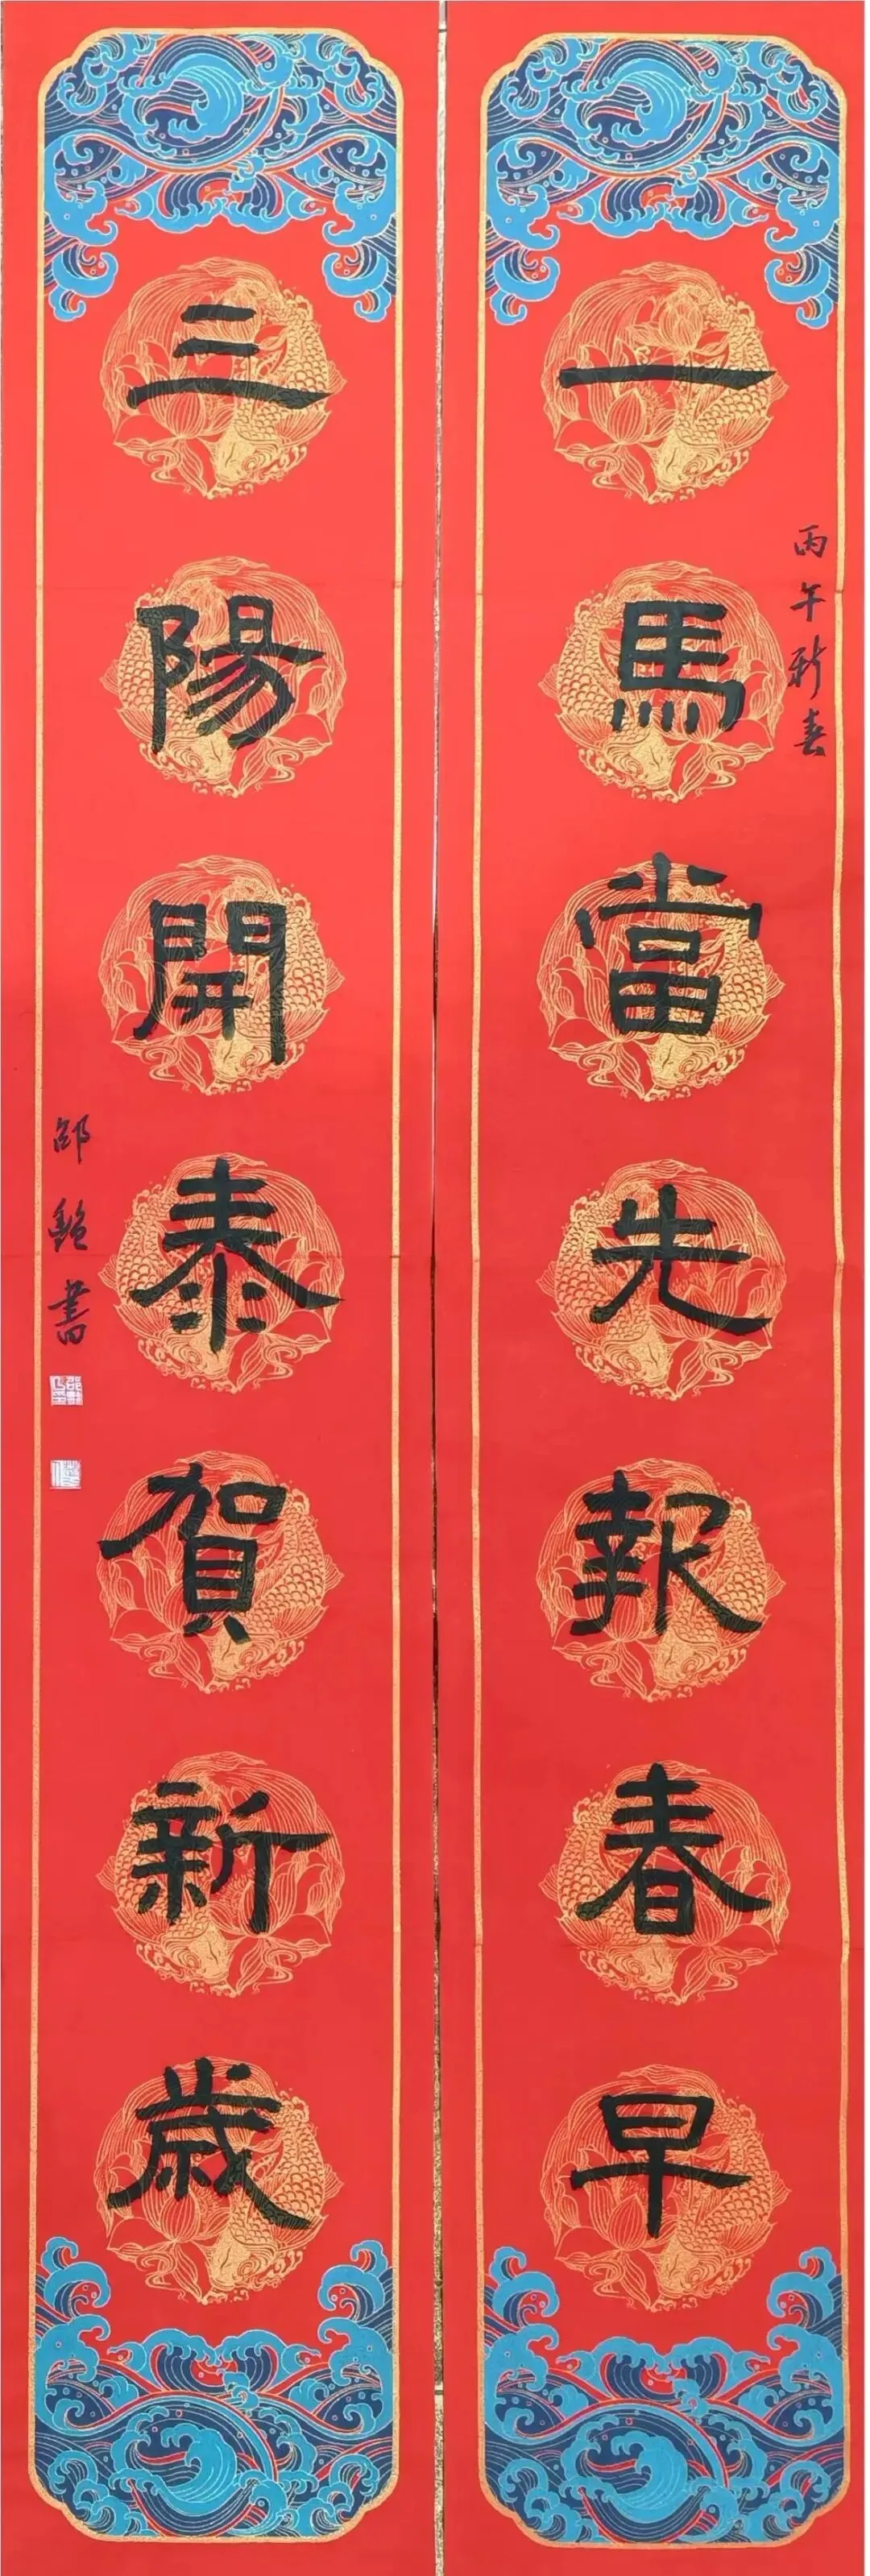 一馬當先報春早
丙午新春
三陽開泰賀新歲
邵艶書